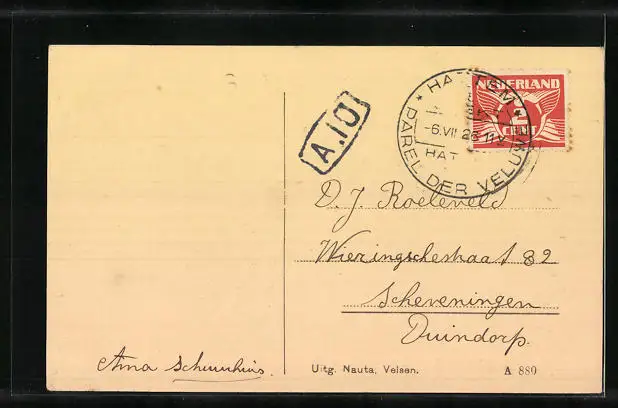 HATTEM
NEDERLAND
2
CENT
-6.VII 26 11.V
HAT
PAREL DER VELUWE
A.10
D. J. Roeleveld
Wieringschestraat 82
Scheveningen
Duindorp.
Anna
Uitg. Nauta, Velsen.
A 880